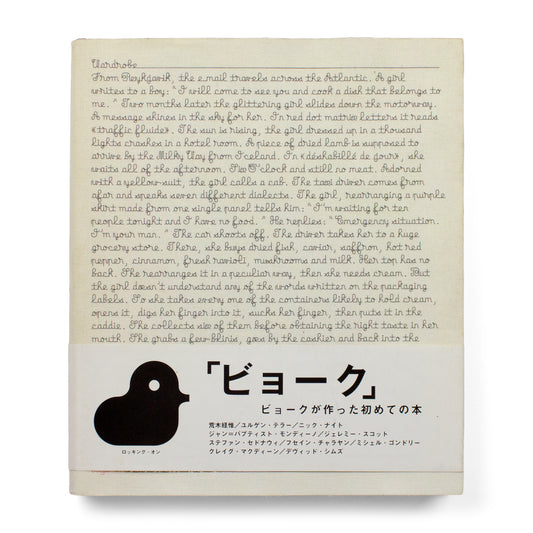 Wardrobe
From Reykjavík, the e.mail travels across the Atlantic. A girl
writes to a boy: "I will come to see you and cook a dish that belongs to
me." Two months later the glittering girl slides down the motorway.
A message shines in the sky for her. In red dot matrix letters it reads
«traffic fluide». The sun is rising, the girl dressed up in a thousand
lights crashes in a hotel room. A piece of dried lamb is supposed to
arrive by the Milky Way from Iceland. In «déshabillé de jour», she
waits all of the afternoon. Six O'clock and still no meat. Adorned
with a yellow suit, the girl calls a cab. The taxi driver comes from
afar and speaks seven different dialects. The girl, rearranging a purple
skirt made from one single panel tells him: "I'm waiting for ten
people tonight and I have no food." He replies: "Emergency situation.
I'm your man." The car shoots off. The driver takes her to a huge
grocery store. There, she buys dried fish, caviar, saffron, hot red
pepper, cinnamon, fresh ravioli, mushrooms and milk. Her top has no
back. She rearranges it in a peculiar way, then she needs cream. But
the girl doesn't understand any of the words written on the packaging
labels. So she takes every one of the containers likely to hold cream,
opens it, digs her finger into it, sucks her finger, then puts it in the
caddie. She collects six of them before obtaining the right taste in her
mouth. She grabs a few blinis, goes by the cashier and back into the
「ビョーク」
ビョークが作った初めての本
荒木経惟／ユルゲン・テラー／ニック・ナイト
ジャン＝バプティスト・モンディーノ／ジェレミー・スコット
ステファン・セドナウィ／フセイン・チャラヤン／ミシェル・ゴンドリー
クレイグ・マクディーン／デヴィッド・シムズ
ロッキング・オン